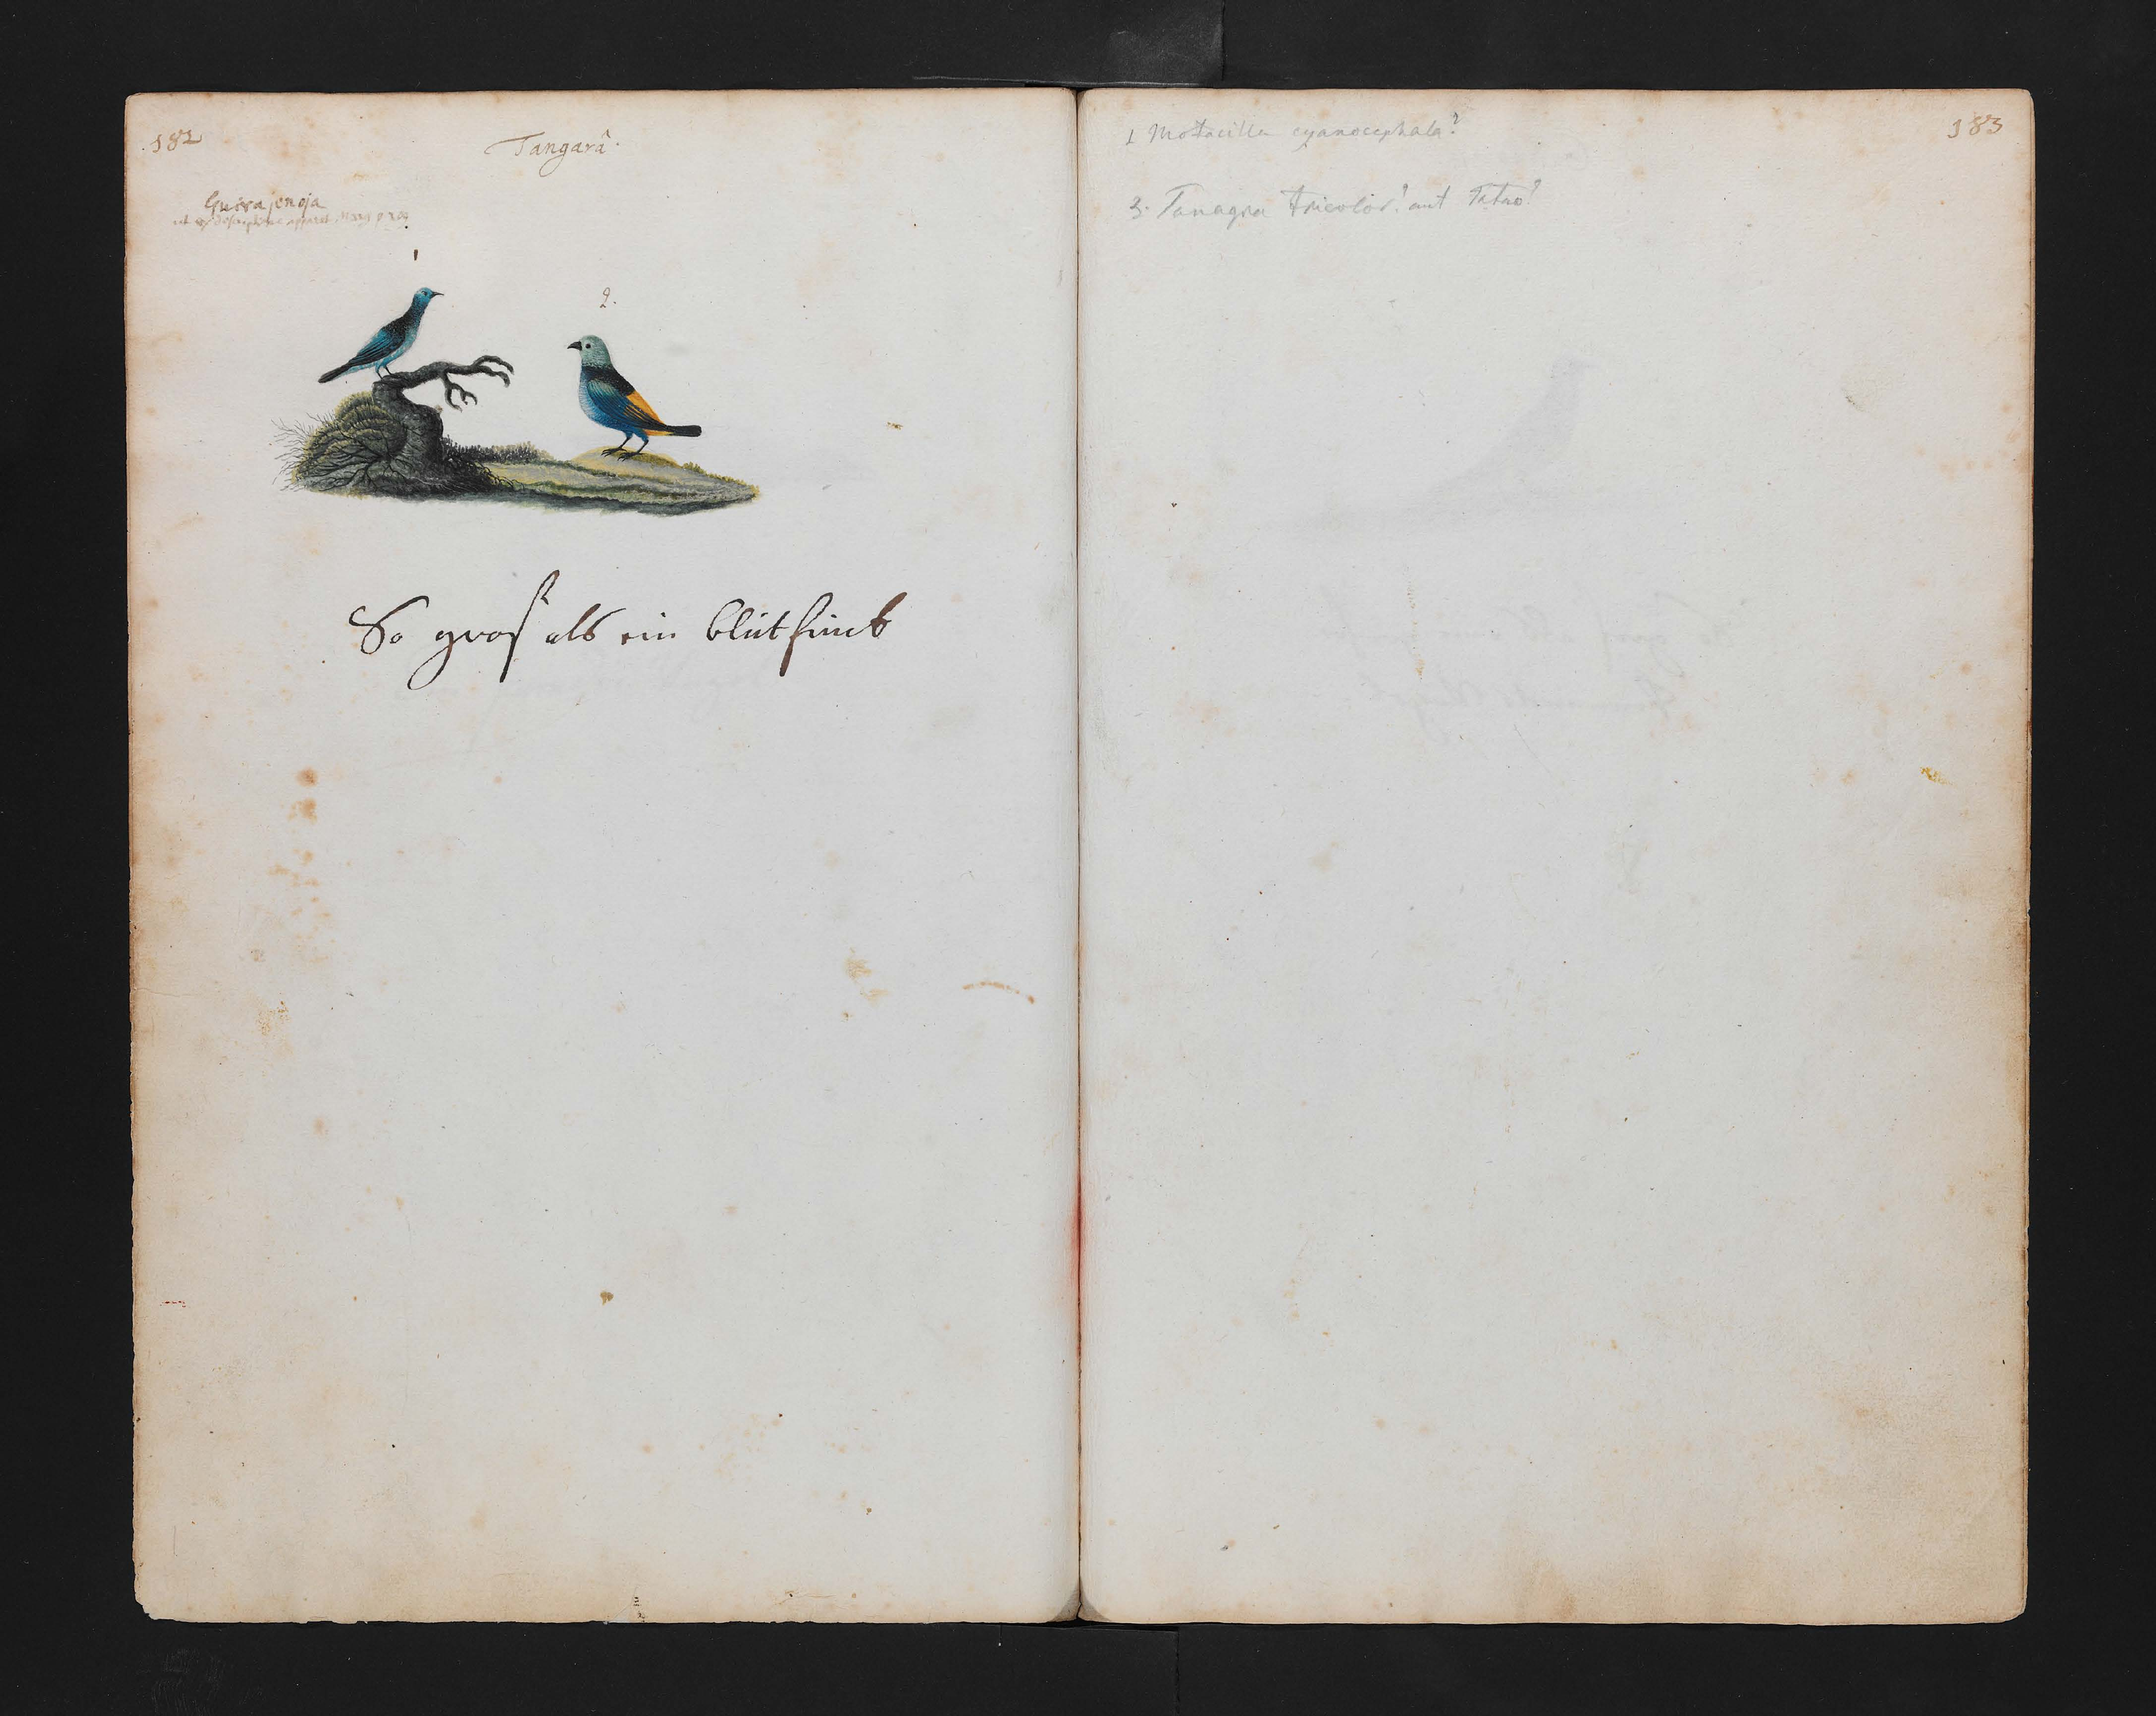 182
Tangarâ.
Guira jenoja
ut ex descriptione apparet Marg p 209
1
2.
So gros als ein blutfinck
183
1 Motacilla cyanocephala?
2. Tanagra tricolor? aut Tatao?